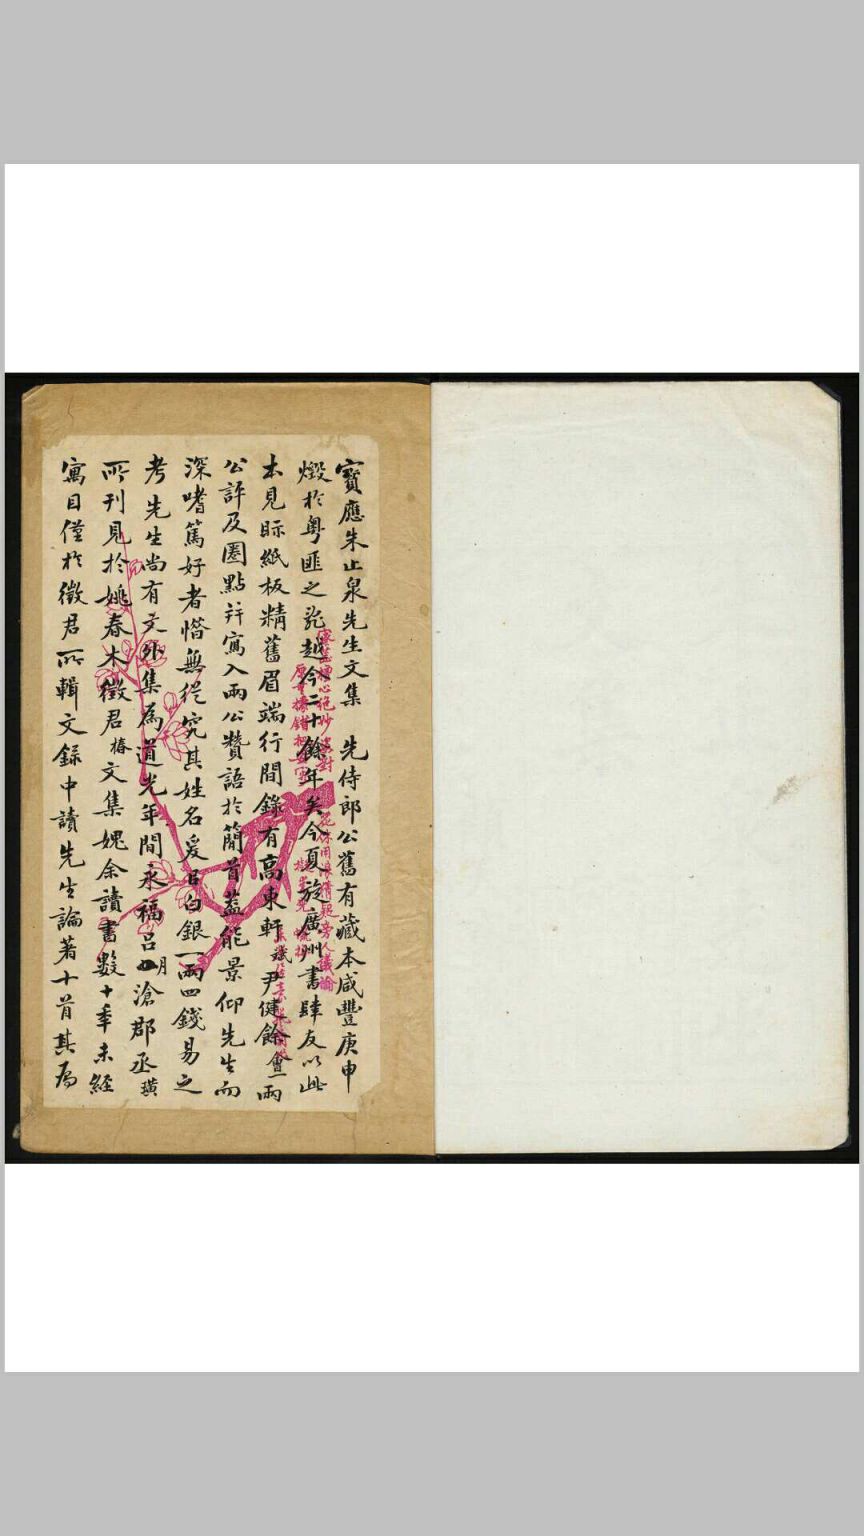 寶應朱止泉先生文集　先侍郎公舊有藏本咸豐庚申
燬於粵匪之亂越今二十餘年矣今夏旋廣州書肆友以此
本見眎紙板精舊眉端行間錄有高東軒尹健餘會一兩
公評及圈點并寫入兩公贊語於簡首蓋能景仰先生而
深嗜篤好者惜無從究其姓名爰以白銀一兩四錢易之
考先生尚有文外集為道光年間永福呂月滄郡丞璜
所刊見於姚春木徵君椿文集媿余讀書數十年未經
寓目僅於徵君所輯文錄中讀先生論著十首其為